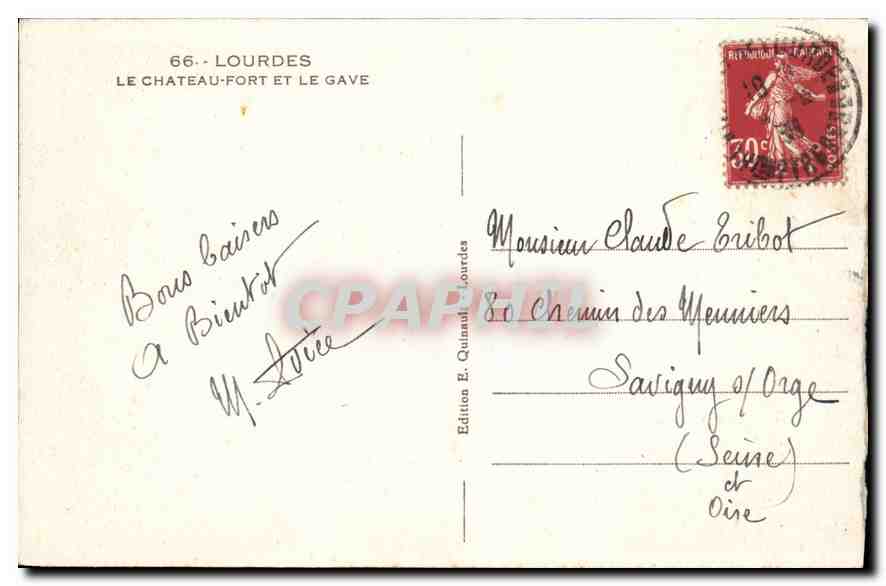 66.- LOURDES
LE CHATEAU-FORT ET LE GAVE
REPUBLIQUE FRANÇAISE
30c
POSTES
Bons baisers
A Bientôt
M.
Edition E. Quinault - Lourdes
CPAPHIL
Monsieur Claude Tribot
80 Chemin des Meuniers
Savigny s/Orge
(Seine)
et
Oise